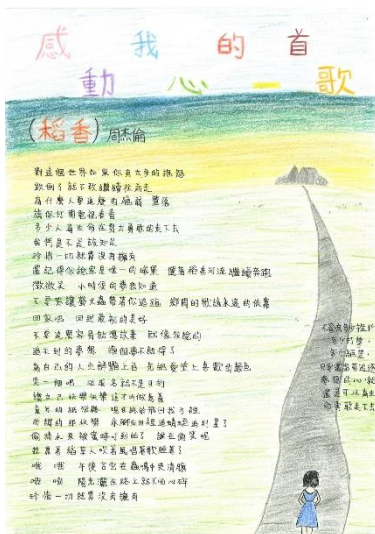 感動我心的一首歌
(稻香) 周杰倫
對這個世界如果你有太多的抱怨
跌倒了就不敢繼續往前走
為什麼人要這麼的脆弱 墮落
請你打開電視看看
多少人為生命在努力勇敢的走下去
我們是不是該知足
珍惜一切就算沒有擁有
還記得你說家是唯一的城堡 隨著稻香河流繼續奔跑
微微笑 小時候的夢我知道
不要哭讓螢火蟲帶著你逃跑 鄉間的歌謠永遠的依靠
回家吧 回到最初的美好
不要這麼容易就想放棄 就像我說的
追不到的夢想 換個夢不就得了
為自己的人生鮮豔上色 先把愛塗上喜歡的顏色
笑一個吧 功成名就不是目的
讓自己快樂快樂這才叫做意義
童年的紙飛機 現在終於飛回我手裡
所謂的那快樂 赤腳在田裡追蜻蜓追到累了
偷摘水果被蜜蜂給叮到怕了 誰在偷笑呢
我靠著稻草人吹著風唱著歌睡著了
哦 哦 午後吉它在蟲鳴中更清脆
哦 哦 陽光灑在路上就不怕心碎
珍惜一切就算沒有擁有